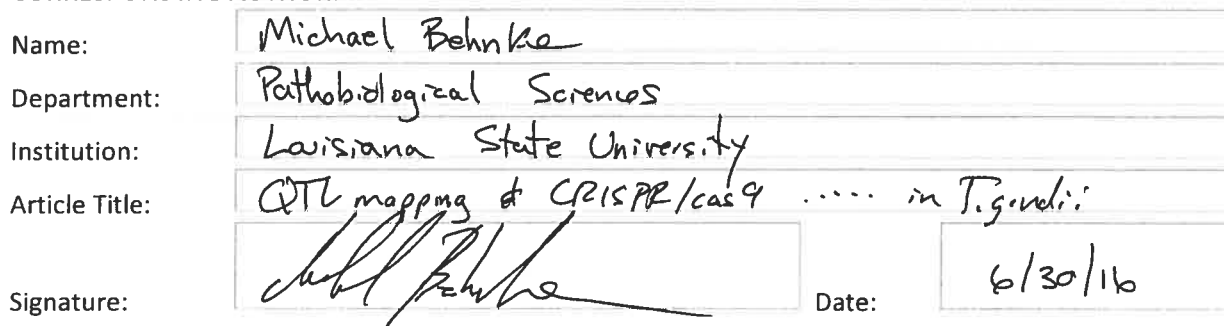 Name: Michael Behnke
Department: Pathobiological Sciences
Institution: Louisiana State University
Article Title: QTL mapping & CRISPR/cas9 ..... in T.gondii
Signature: Date: 6/30/16